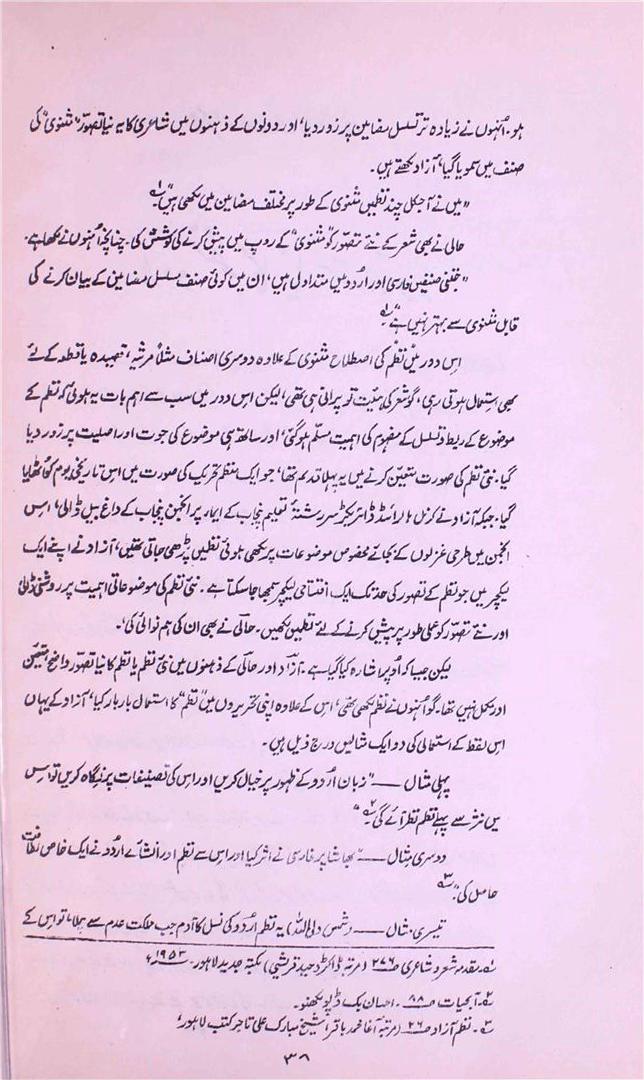 ہو۔ اُنہوں نے زیادہ تر تسلسل مضامین پر زور دیا، اور دونوں کے ذہنوں میں شاعری کا یہ نیا تصوّر "مثنوی" کی
صنف میں سمویا گیا، آزاد لکھتے ہیں۔
"میں نے آجکل چند نظمیں مثنوی کے طور پر مختلف مضامین میں لکھی ہیں"۱؎
حالی نے بھی شعر کے نئے تصوّر کو "مثنوی" کے روپ میں پیش کرنے کی کوشش کی۔ چنانچہ اُنہوں نے لکھا ہے۔
"جتنی صنفیں فارسی اور اُردو میں متداول ہیں، ان میں کوئی صنف مسلسل مضامین کے بیان کرنے کی
قابل مثنوی سے بہتر نہیں ہے"۱؎
اس دور میں نظم کی اصطلاح مثنوی کے علاوہ دوسری اصناف مثلاً مرثیہ، قصیدہ یا قطعہ کے لئے
بھی استعمال ہوتی رہی، گو شعر کی ہیئت تو پرانی ہی تھی، لیکن اس دور میں سب سے اہم بات یہ ہوئی کہ نظم کے
موضوع کے ربط و تسلسل کے مفہوم کی اہمیت مسلّم ہو گئی، اور ساتھ ہی موضوع کی جوت اور اصلیت پر زور دیا
گیا۔ نئی نظم کی صورت متعین کرنے میں یہ پہلا قدم تھا، جو ایک منظم تحریک کی صورت میں اس تاریخی یوم کو اٹھایا
گیا۔ جبکہ آزاد نے کرنل ہالرائڈ ڈائریکٹر سررشتۂ تعلیم پنجاب کے ایماء پر انجمن پنجاب کے داغ بیل ڈالی، اس
انجمن میں طرحی غزلوں کے بجائے مخصوص موضوعات پر لکھی ہوئی نظمیں پڑھی جاتی تھیں، آزاد نے اپنے ایک
لیکچر میں جو نظم کے تصور کی حد تک ایک افتتاحی لیکچر سمجھا جا سکتا ہے۔ نئی نظم کی موضوعاتی اہمیت پر روشنی ڈالی
اور نئے تصوّر کو عملی طور پر پیش کرنے کے لئے نظمیں لکھیں۔ حالی نے بھی ان کی ہم نوائی کی۔
لیکن جیسا کہ اُوپر اشارہ کیا گیا ہے۔ آزاد اور حالی کے ذہنوں میں نئی نظم یا نظم کا نیا تصوّر واضح متعین
اور مکمل نہیں تھا۔ گو اُنہوں نے نظم لکھی تھی، اس کے علاوہ اپنی تحریروں میں "نظم" کا استعمال بار بار کیا، آزاد کے یہاں
اس لفظ کے استعمال کی دو ایک مثالیں درج ذیل ہیں۔
پہلی مثال — "زبان اُردو کے ظہور پر خیال کریں اور اس کی تصنیفات پر نگاہ کریں تو اس
میں نثر سے پہلے نظم نظر آئے گی"۲؎
دوسری مثال — "بھاشا پر فارسی نے اثر کیا اور اس سے نظم اور انشائے اُردو نے ایک خاص لطافت
حاصل کی"۳؎
تیسری مثال — (شمس ولی اللہ) یہ نظم اُردو کی نسل کا آدم جب ملکت عدم سے چلا، تو اس کے
۱؎ مقدمہ شعر و شاعری ص۲۷۶ (مرتبہ ڈاکٹر وحید قریشی) مکتبہ جدید لاہور۔ ۱۹۵۳ء
۲؎ آبحیات ص۸۸۔ احسان بک ڈپو لکھنو۔
۳؎۔ نظم آزاد ص۲۶ (مرتبہ آغا محمد باقر) شیخ مبارک علی تاجر کتب لاہور،
۳۸